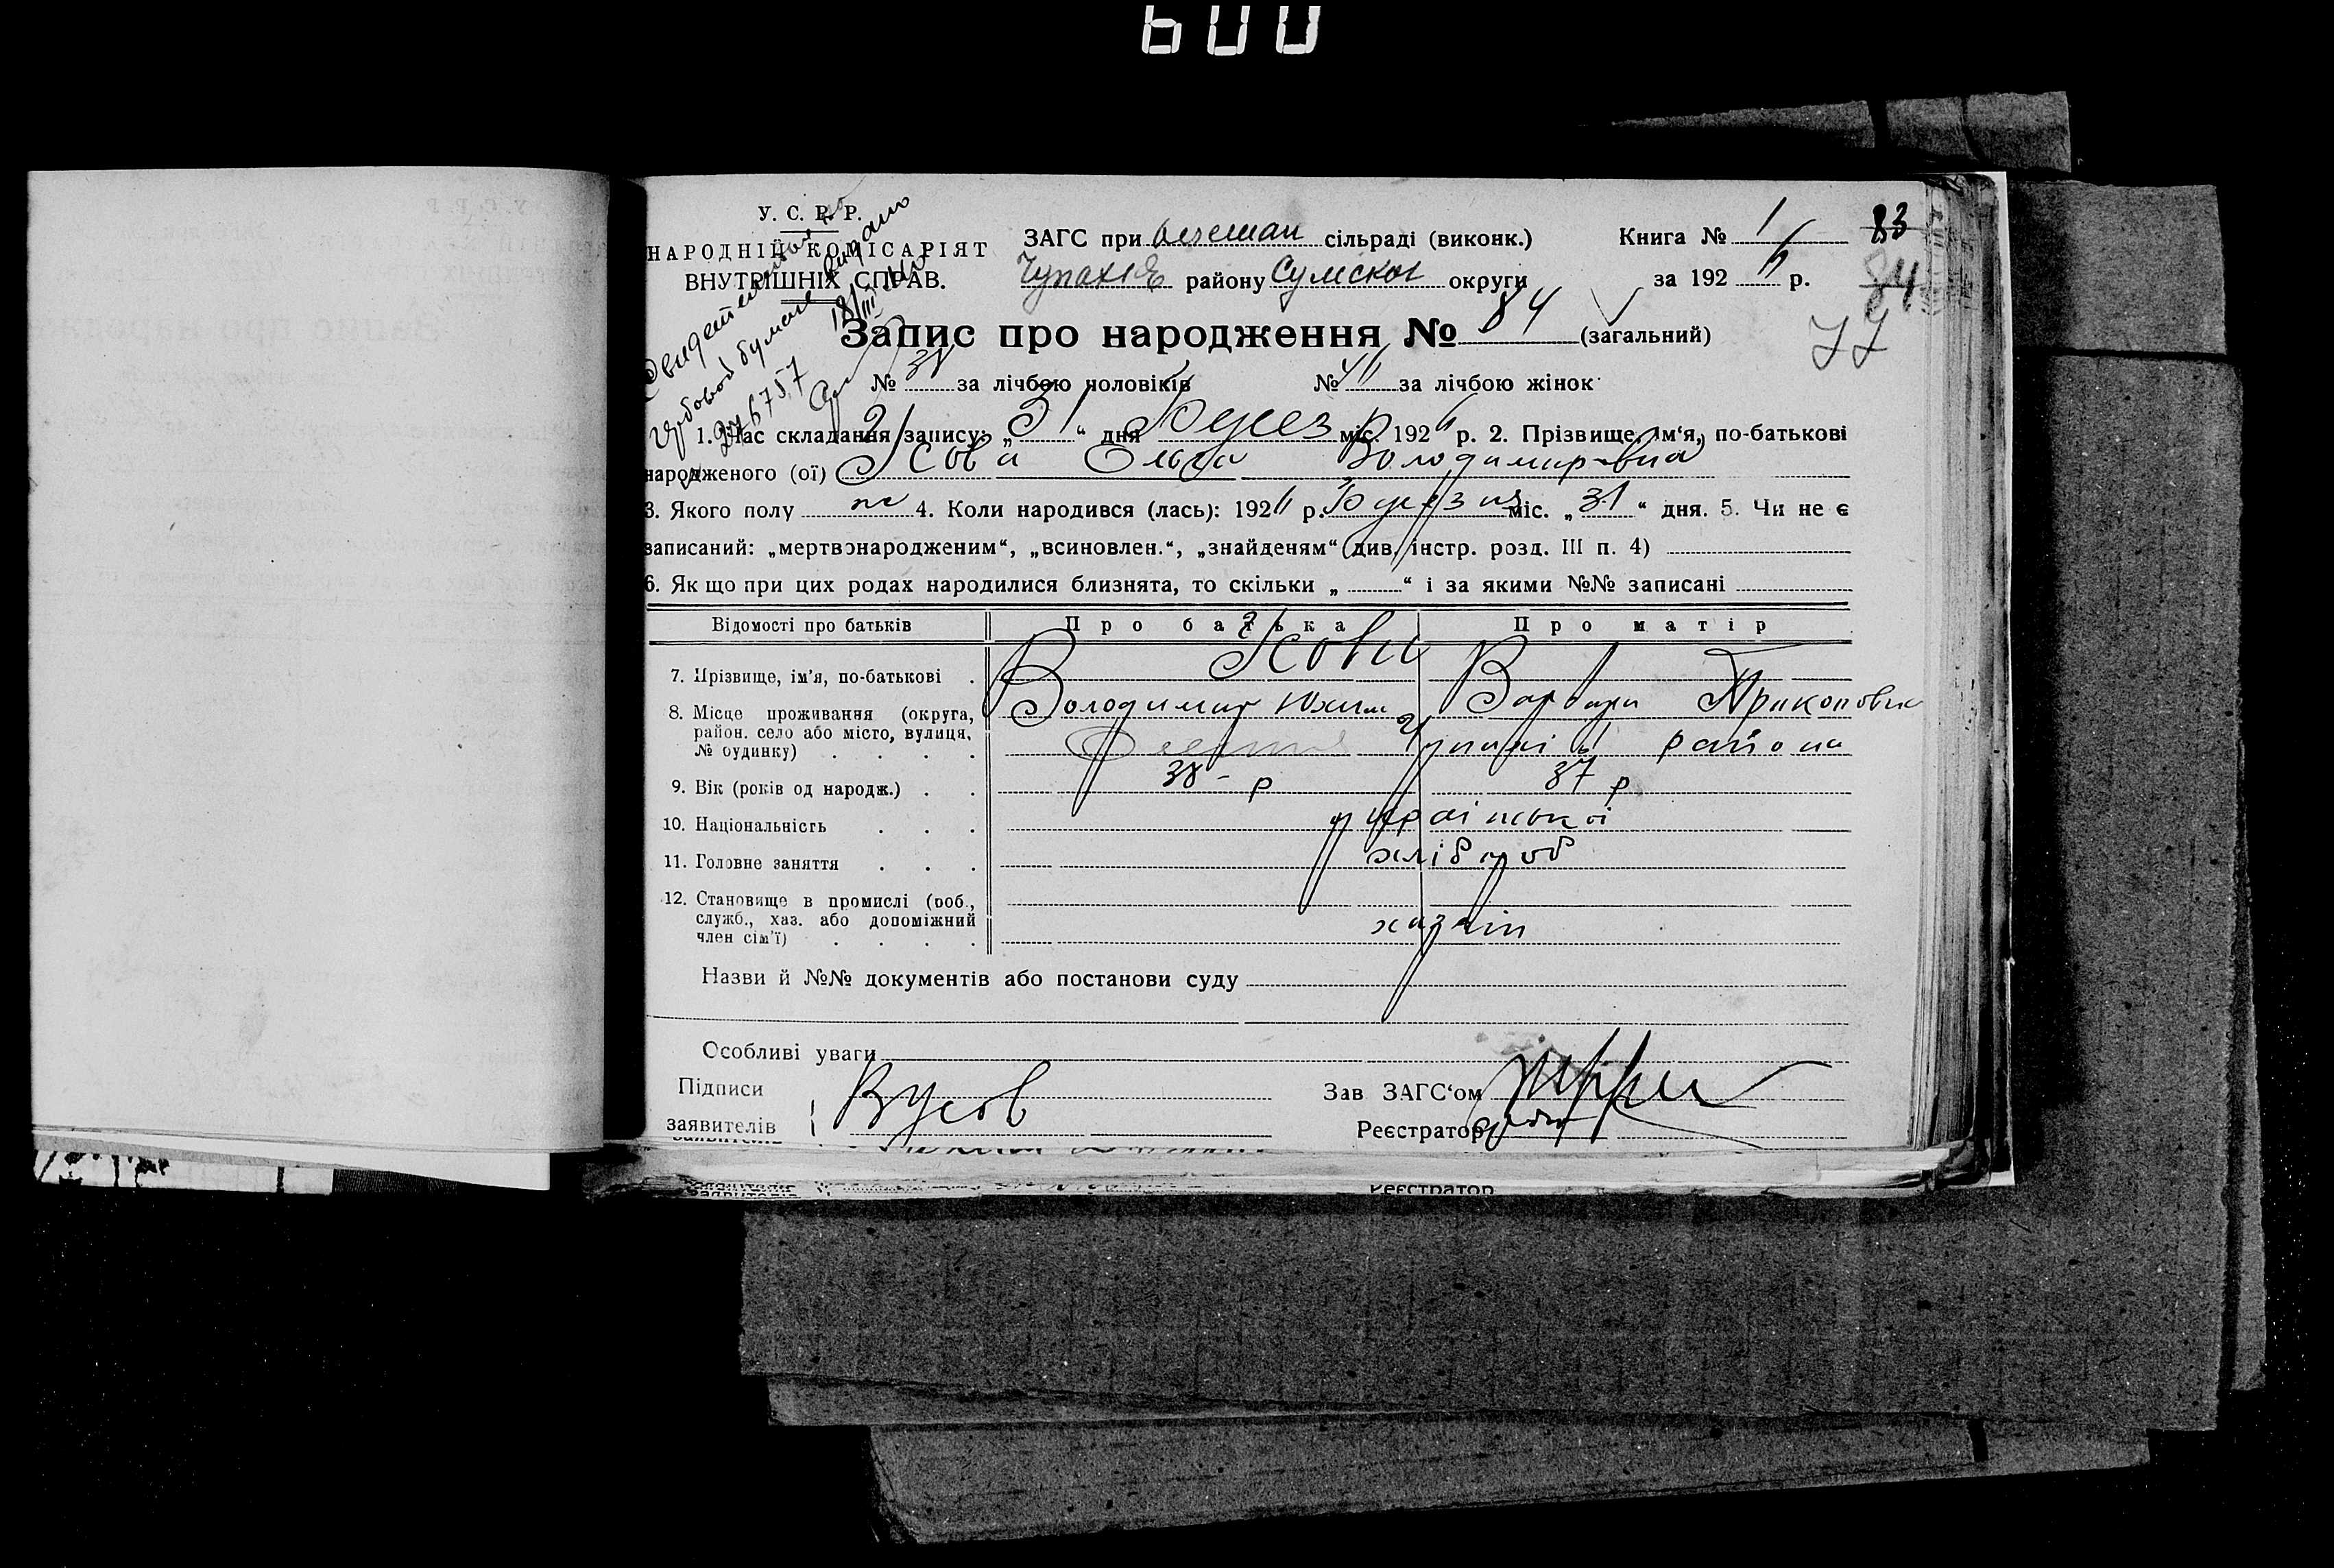 600
У. С. Р. Р.
НАРОДНІЙ КОМІСАРІЯТ
ВНУТРІШНІХ СПРАВ.
ЗАГС при сільраді (виконк.)
району Сумської округи
Книга № 1
за 192 6 р.
83
84
77
Запис про народження № 84 (загальний)
№ за лічбою чоловіків № за лічбою жінок
1. Час складання запису: „ 31 “ дня міс. 192 6 р. 2. Прізвище, ім‘я, по-батькові
народженого (ої) Усова Ольга Володимировна
3. Якого полу ж 4. Коли народився (лась): 192 6 р. Березня міс. „ 31 “ дня. 5. Чи не є
записаний: „мертвонародженим“, „всиновлен.“, „знайденям“ (див. інстр. розд. III п. 4)
6. Якщо при цих родах народилися близнята, то скільки „ “ і за якими №№ записані
Відомості про батьків Про батька Про матір
7. Прізвище, ім'я, по-батькові Усови
Володимир Юхим Варвара Прикоповна
8. Місце проживання (округа,
район. село або місто, вулиця,
№ будинку) района
9. Вік (років од народж.) 38 - р 37 р
10. Національність української
11. Головне заняття хлібороб
12. Становище в промислі (роб.,
служб., хаз. або допоміжний
член сім'ї) хазяїн
Назви й №№ документів або постанови суду
Особливі уваги
Підписи
заявителів В Усов
Зав ЗАГС‘ом
Реєстратор
Реєстратор